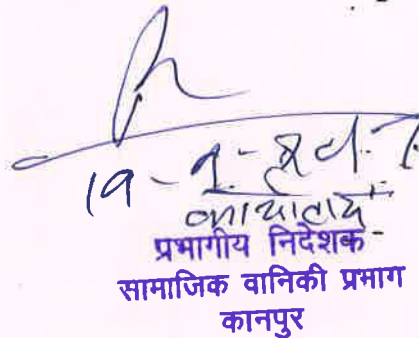 कार्यालय
प्रभागीय निदेशक
सामाजिक वानिकी प्रभाग
कानपुर